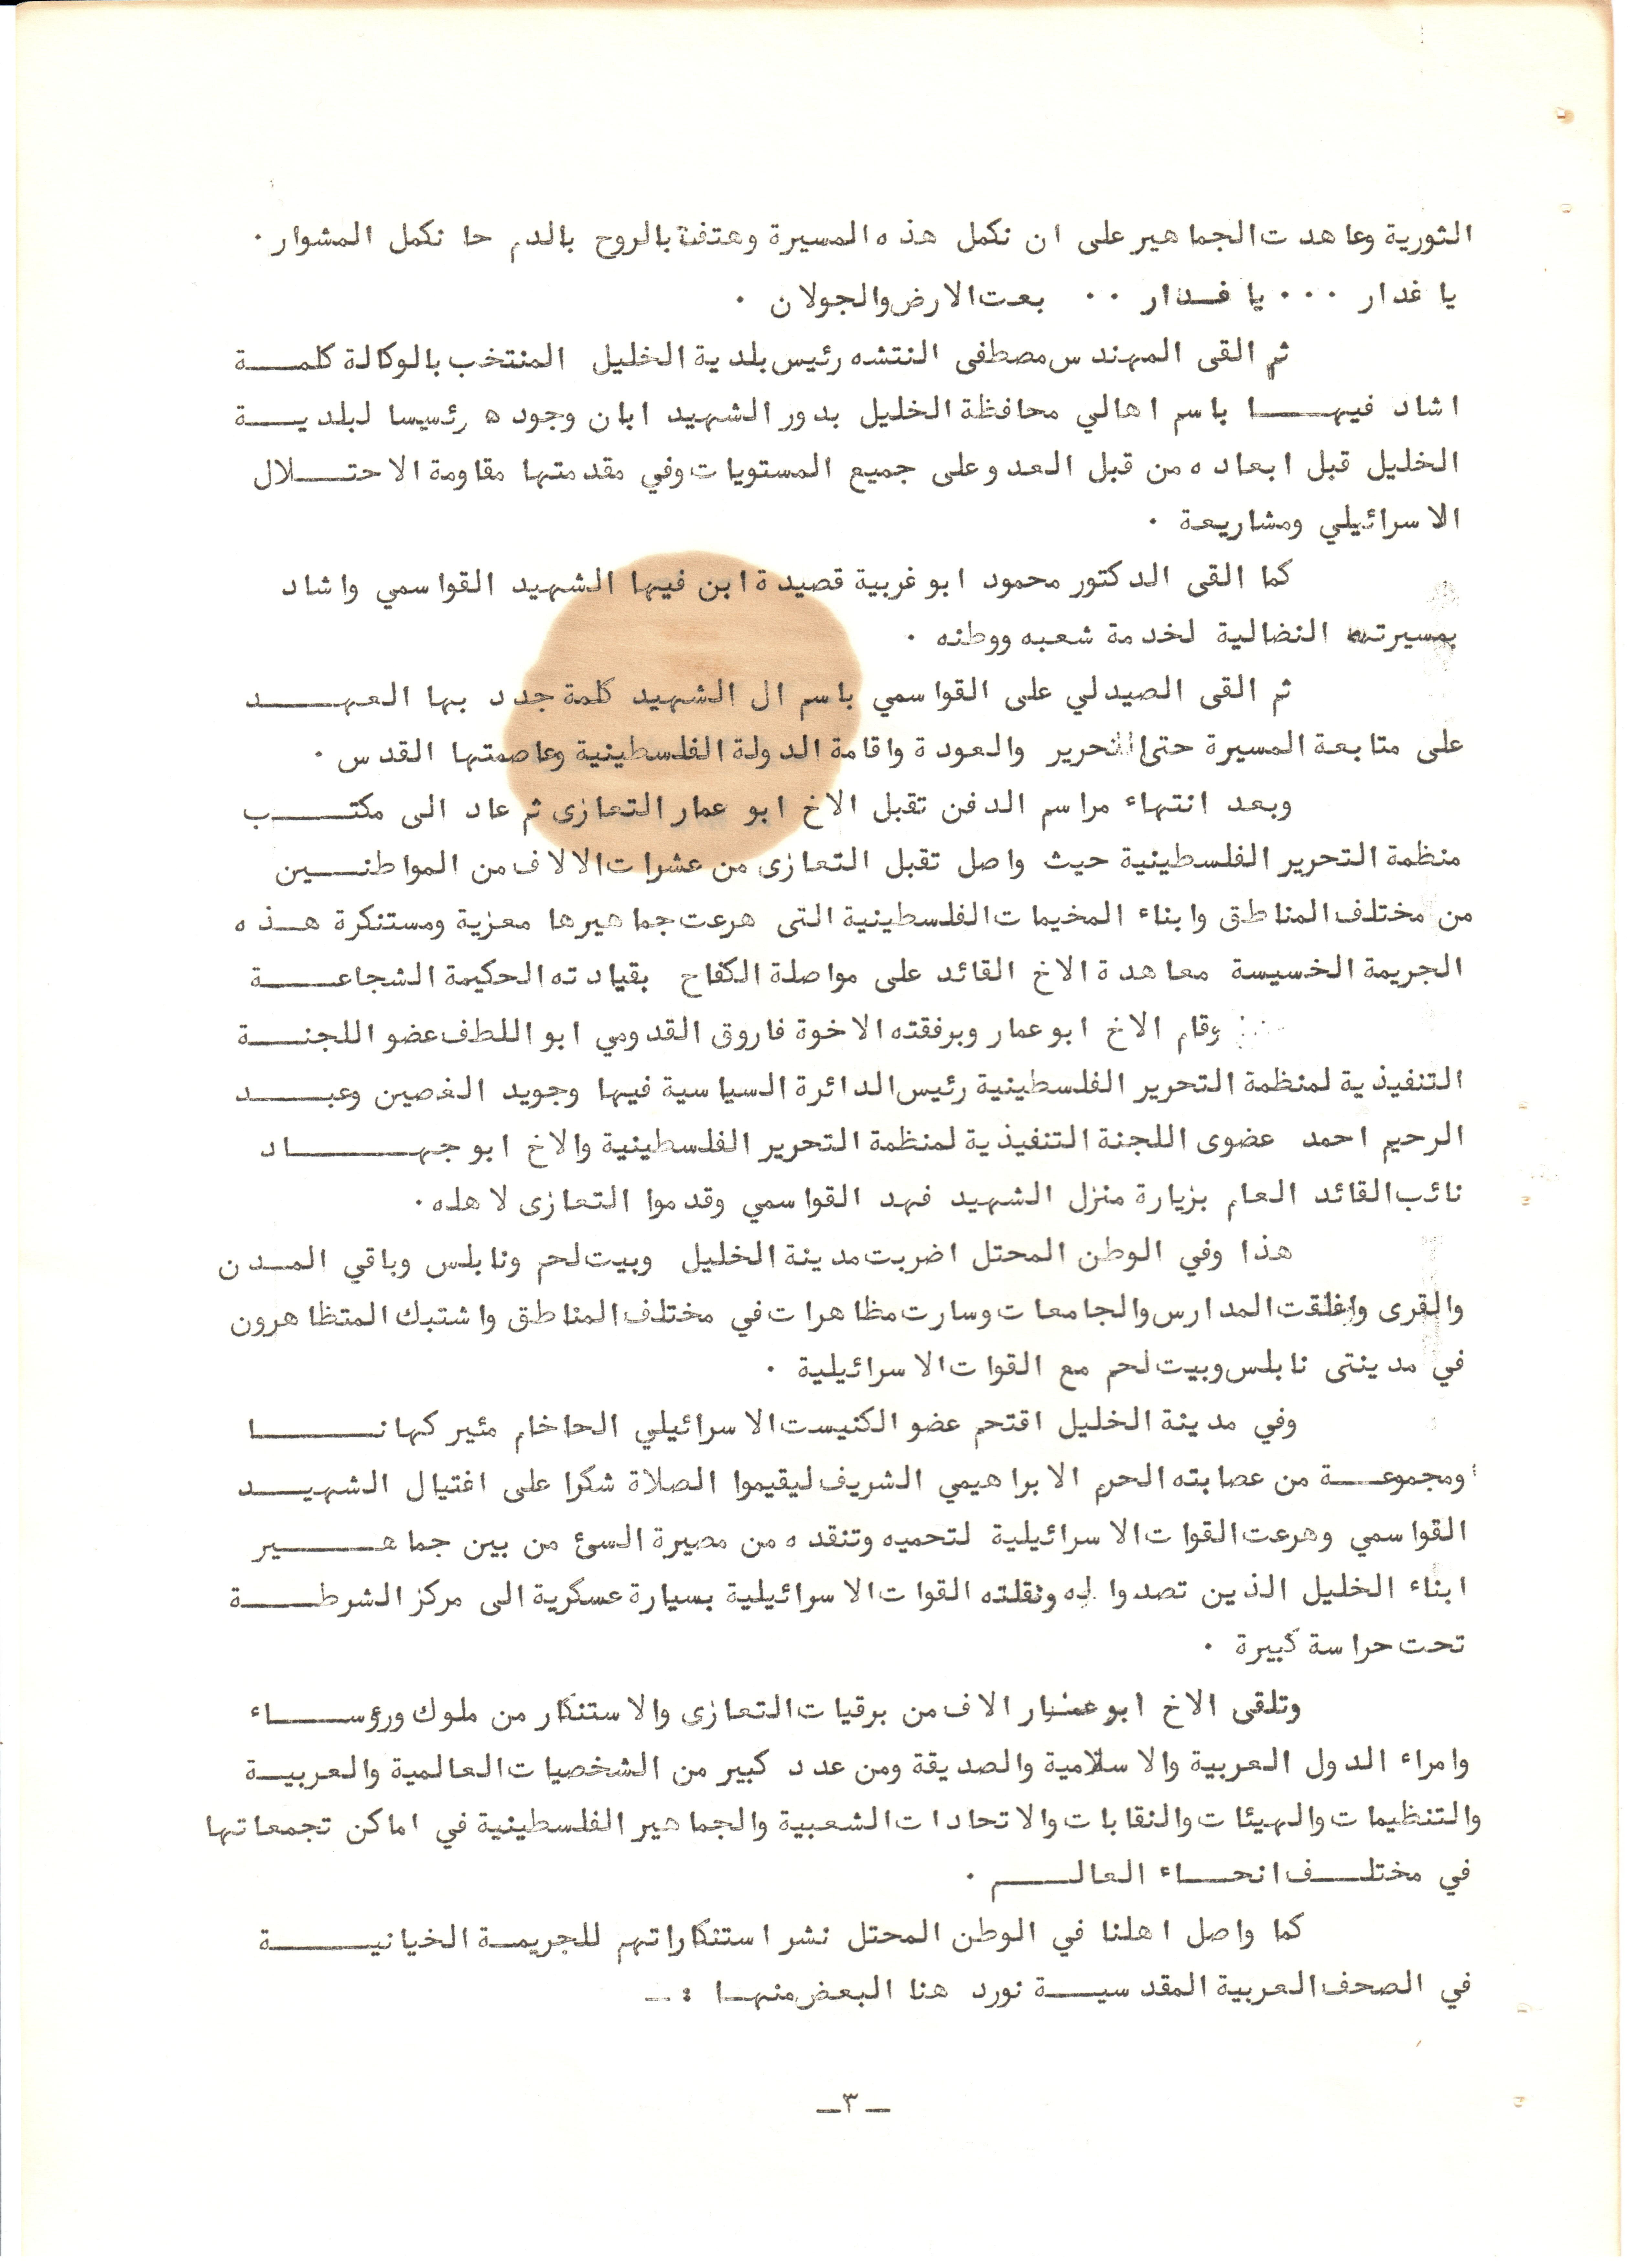 الثورية وعاهدت الجماهير على ان نكمل هذه المسيرة وهتفت بالروح بالدم حا نكمل المشوار .
يا غدار ... يا غدار .. بعت الارض والجولان .
ثم القى المهندس مصطفى النتشه رئيس بلدية الخليل المنتخب بالوكالة كلمة
اشاد فيها باسم اهالي محافظة الخليل بدور الشهيد ابان وجوده رئسيسا لبلدية
الخليل قبل ابعاده من قبل العدو على جميع المستويات وفي مقدمتها مقاومة الاحتلال
الاسرائيلي ومشاريعة .
كما القى الدكتور محمود ابو غربية قصيدة ابن فيها الشهيد القواسمي واشاد
بمسيرته النضالية لخدمة شعبه ووطنه .
ثم القى الصيدلي على القواسمي باسم ال الشهيد كلمة جدد بها العهد
على متابعة المسيرة حتى التحرير والعودة واقامة الدولة الفلسطينية وعاصمتها القدس .
وبعد انتهاء مراسم الدفن تقبل الاخ ابو عمار التعازى ثم عاد الى مكتب
منظمة التحرير الفلسطينية حيث واصل تقبل التعازى من عشرات الالاف من المواطنين
من مختلف المناطق وابناء المخيمات الفلسطينية التى هرعت جماهيرها معزية ومستنكرة هذه
الجريمة الخسيسة معاهدة الاخ القائد على مواصلة الكفاح بقيادته الحكيمة الشجاعة
وقام الاخ ابو عمار وبرفقته الاخوة فاروق القدومي ابو اللطف عضو اللجنة
التنفيذية لمنظمة التحرير الفلسطينية رئيس الدائرة السياسية فيها وجويد الغصين وعبد
الرحيم احمد عضوى اللجنة التنفيذية لمنظمة التحرير الفلسطينية والاخ ابو جهاد
نائب القائد العام بزيارة منزل الشهيد فهد القواسمي وقدموا التعازى لاهله .
هذا وفي الوطن المحتل اضربت مدينة الخليل وبيت لحم ونابلس وباقي المدن
والقرى واغلقت المدارس والجامعات وسارت مظاهرات في مختلف المناطق واشتبك المتظاهرون
في مدينتى نابلس وبيت لحم مع القوات الاسرائيلية .
وفي مدينة الخليل اقتحم عضو الكنيست الاسرائيلي الحاخام مئير كهانا
ومجموعة من عصابته الحرم الابراهيمي الشريف ليقيموا الصلاة شكرا على اغتيال الشهيد
القواسمي وهرعت القوات الاسرائيلية لتحميه وتنقده من مصيرة السئ من بين جماهير
ابناء الخليل الذين تصدوا له ونقلته القوات الاسرائيلية بسيارة عسكرية الى مركز الشرطة
تحت حراسة كبيرة .
وتلقى الاخ ابو عمار الاف من برقيات التعازى والاستنكار من ملوك ورؤساء
وامراء الدول العربية والاسلامية والصديقة ومن عدد كبير من الشخصيات العالمية والعربية
والتنظيمات والهيئات والنقابات والاتحادات الشعبية والجماهير الفلسطينية في اماكن تجمعاتها
في مختلف انحاء العالم .
كما واصل اهلنا في الوطن المحتل نشر استنكاراتهم للجريمة الخيانية
في الصحف العربية المقدسية نورد هنا البعض منها : ـ
ـ ٣ ـ